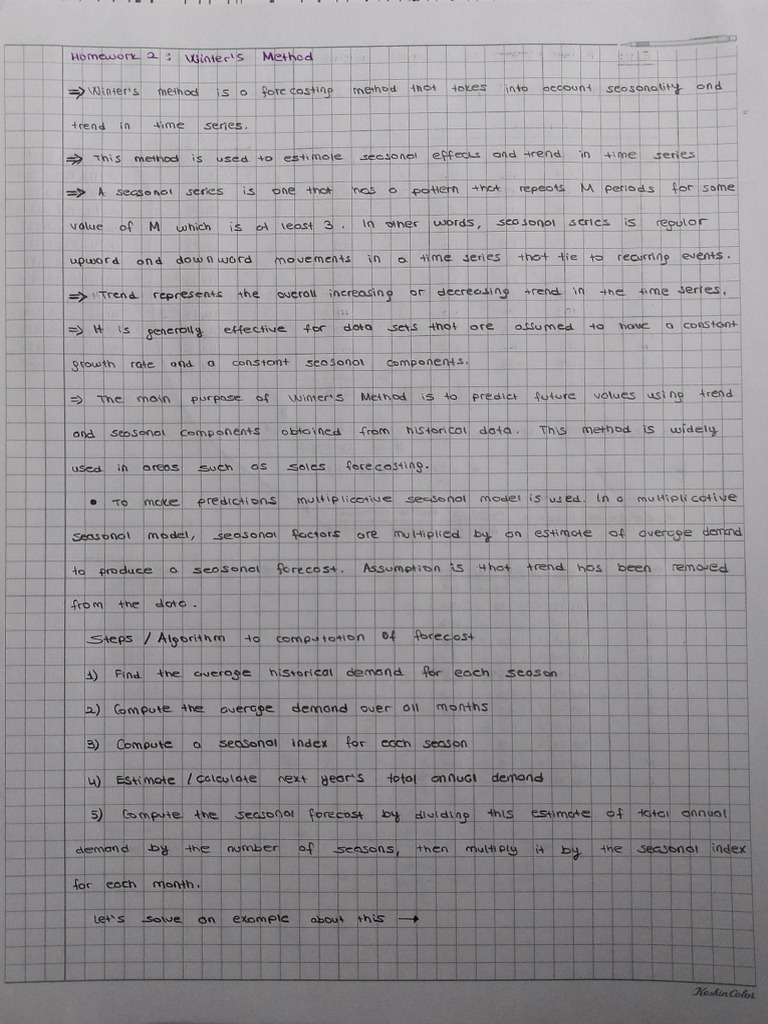 Homework 2 : Winter's Method
⇒ Winter's method is a forecasting method that takes into account seasonality and
trend in time series.
⇒ This method is used to estimate seasonal effects and trend in time series
⇒ A seasonal series is one that has a pattern that repeats M periods for some
value of M which is at least 3. In other words, seasonal series is regular
upward and downward movements in a time series that tie to recurring events.
⇒ Trend represents the overall increasing or decreasing trend in the time series.
⇒ It is generally effective for data sets that are assumed to have a constant
growth rate and a constant seasonal components.
⇒ The main purpose of Winter's Method is to predict future values using trend
and seasonal components obtained from historical data. This method is widely
used in areas such as sales forecasting.
• To make predictions multiplicative seasonal model is used. In a multiplicative
seasonal model, seasonal factors are multiplied by an estimate of average demand
to produce a seasonal forecast. Assumption is that trend has been removed
from the data.
Steps / Algorithm to computation of forecast
1) Find the average historical demand for each season
2) Compute the average demand over all months
3) Compute a seasonal index for each season
4) Estimate / calculate next year's total annual demand
5) Compute the seasonal forecast by dividing this estimate of total annual
demand by the number of seasons, then multiply it by the seasonal index
for each month.
Let's solve an example about this →
KeskinColor